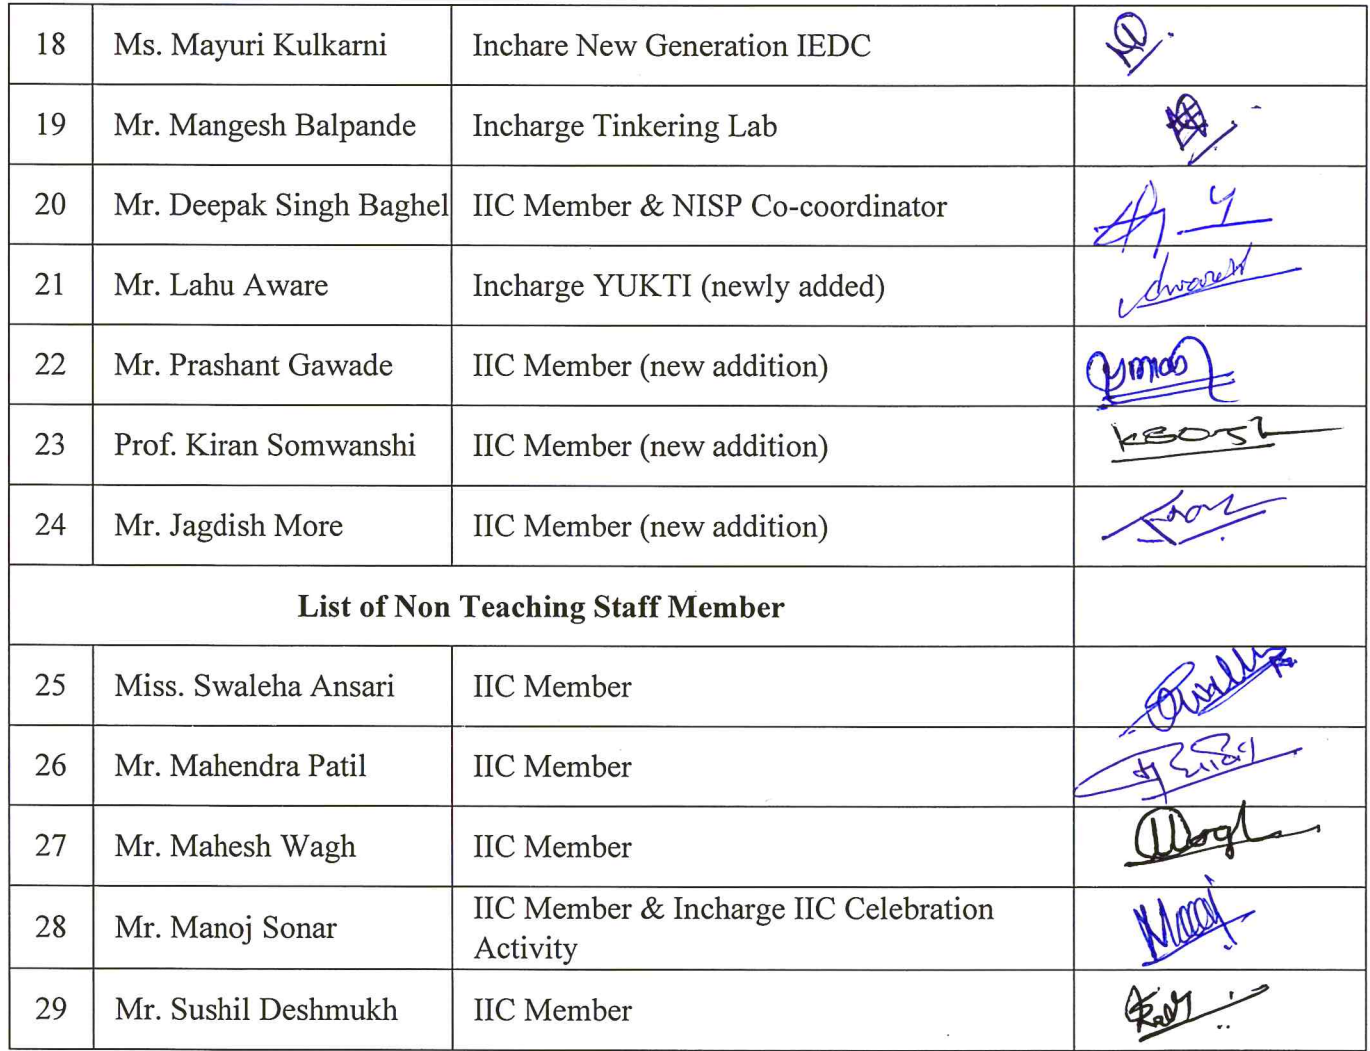 18 Ms. Mayuri Kulkarni Inchare New Generation IEDC
19 Mr. Mangesh Balpande Incharge Tinkering Lab
20 Mr. Deepak Singh Baghel IIC Member & NISP Co-coordinator
21 Mr. Lahu Aware Incharge YUKTI (newly added)
22 Mr. Prashant Gawade IIC Member (new addition)
23 Prof. Kiran Somwanshi IIC Member (new addition)
24 Mr. Jagdish More IIC Member (new addition)
List of Non Teaching Staff Member
25 Miss. Swaleha Ansari IIC Member
26 Mr. Mahendra Patil IIC Member
27 Mr. Mahesh Wagh IIC Member
28 Mr. Manoj Sonar IIC Member & Incharge IIC Celebration
Activity
29 Mr. Sushil Deshmukh IIC Member